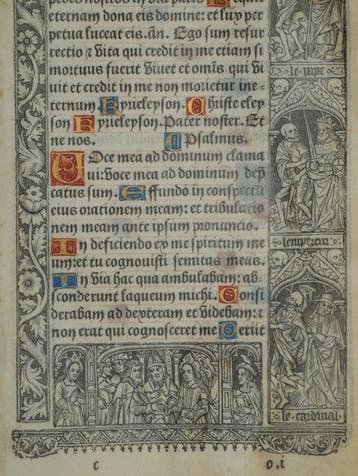 eternam dona eis domine: et lux per
petua luceat eis. añ. Ego sum resur
rectio ⁊ vita qui credit in me etiam si
mortuus fuerit vivet et omīs qui vi
vit et credit in me non morietur in e-
ternum Kyrieleyson. Christe eley
son Kyrieleyson. Pater noster. Et
ne nos. Psalmus.
Voce mea ad dominum clama
vi: voce mea ad dominum dep̄
catus sum. Effundo in conspectu
eius orationem meam: et tribulatio
nem meam ante ipsum pronuncio.
In deficiendo ex me spiritum me
um: et tu cognovisti semitas meas.
In via hac qua ambulabam: abs
conderunt laqueum michi. Consi
derabam ad dexteram et videbam: ⁊
non erat qui cognosceret me Periit
le pape
lempereur
le cardinal
c
o.i